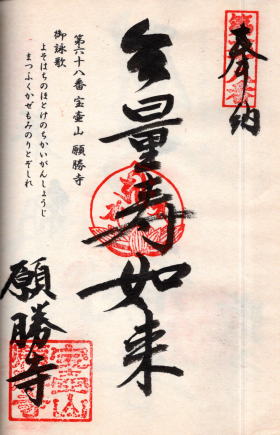 奉納
無量寿如来
第六十八番 宝壷山 願勝寺
御詠歌
よそはちのほとけのちかいがんしょうじ
まつふくかぜもみのりとぞしれ
願勝寺